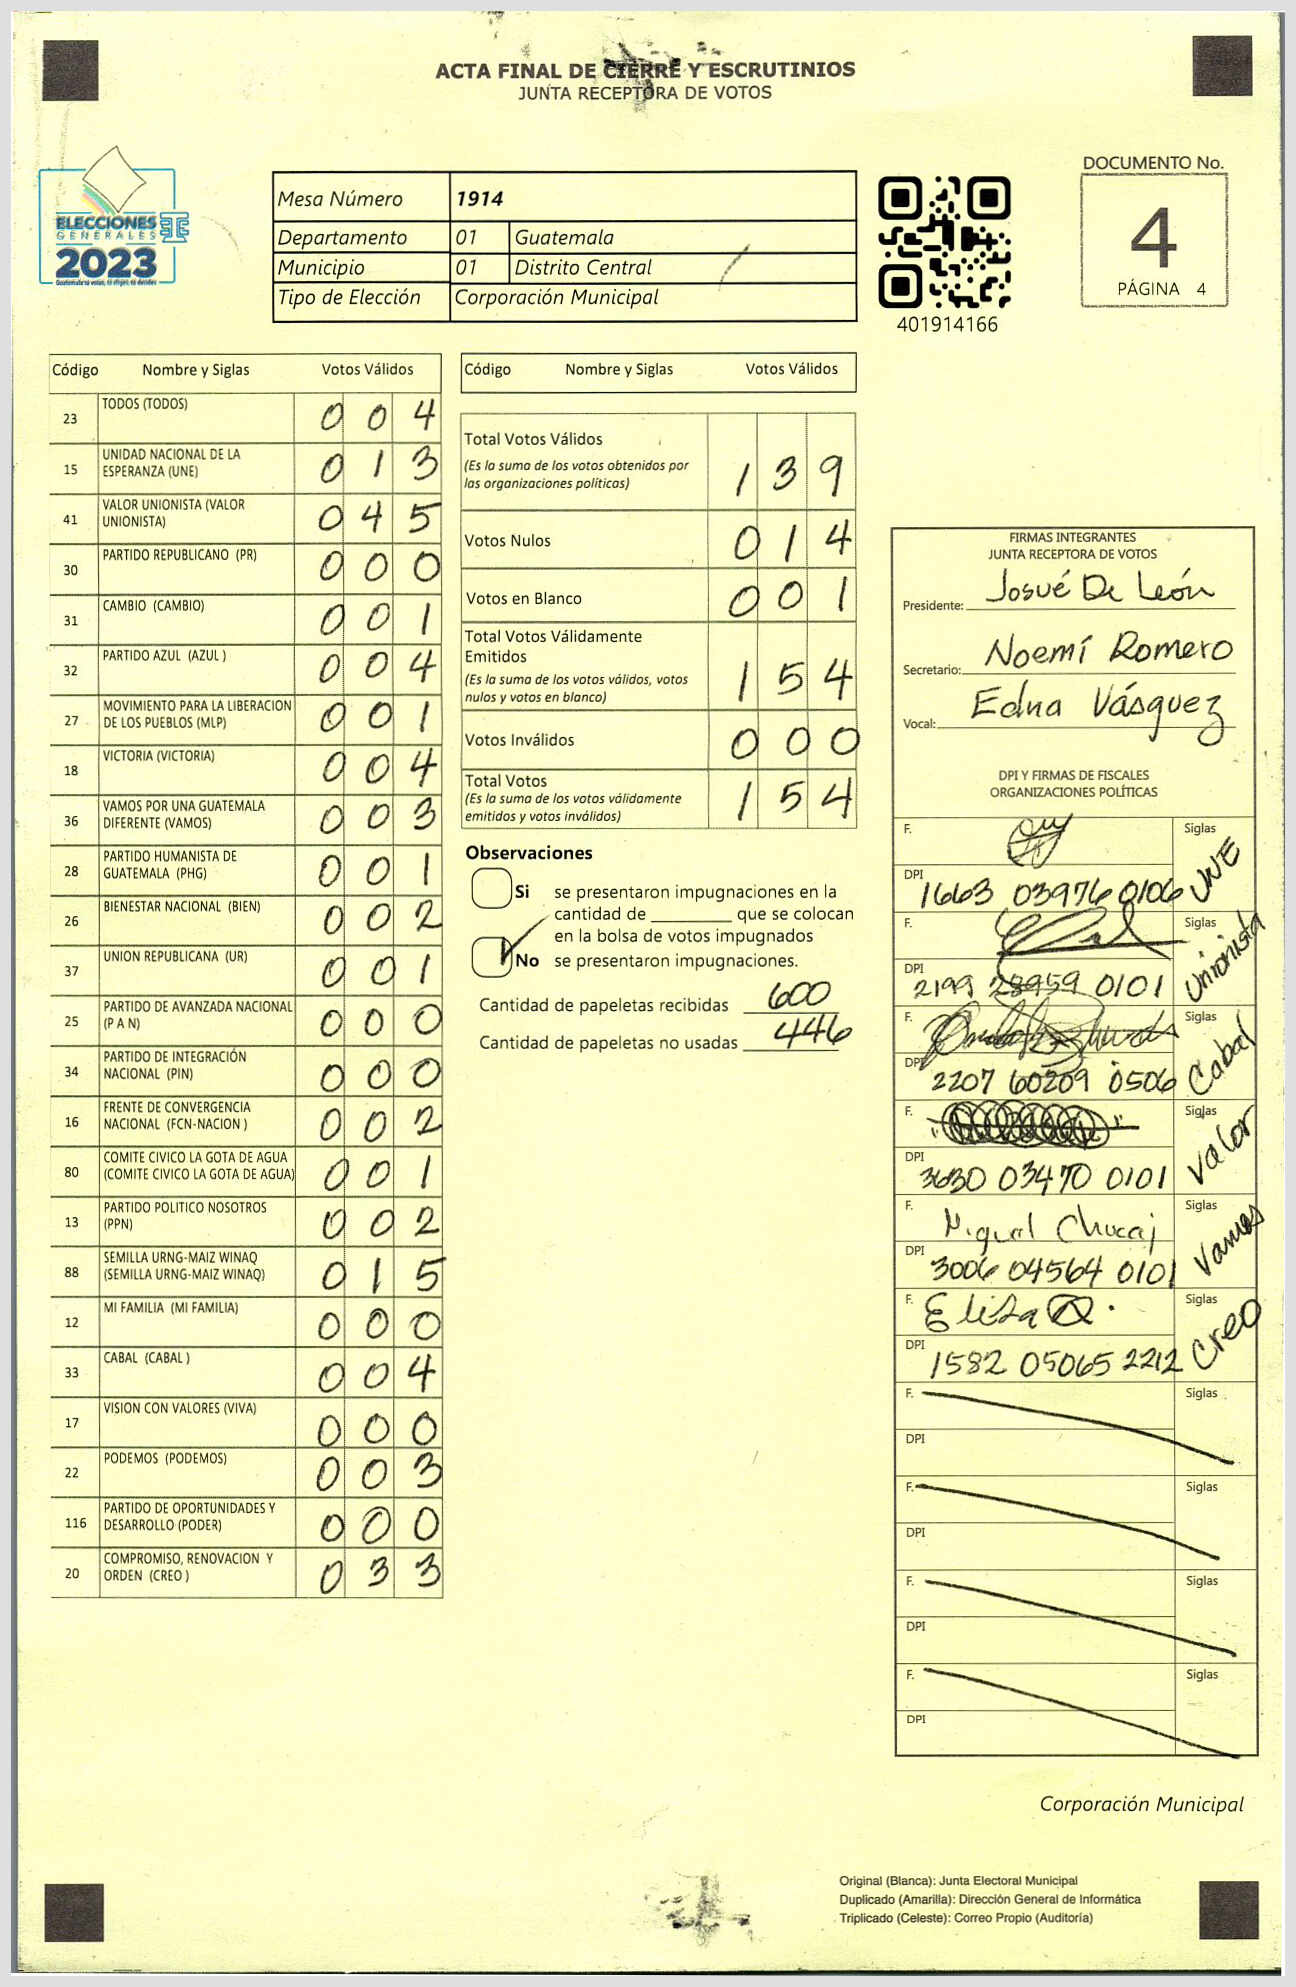 ACTA FINAL DE CIERRE Y ESCRUTINIOS
JUNTA RECEPTORA DE VOTOS
ELECCIONES
GENERALES
2023
Guatemala tú votas, tú eliges, tú decides
Mesa Número 1914
Departamento 01 Guatemala
Municipio 01 Distrito Central
Tipo de Elección Corporación Municipal
401914166
DOCUMENTO No.
4
PÁGINA 4
Código Nombre y Siglas Votos Válidos
23 TODOS (TODOS) 0 0 4
15 UNIDAD NACIONAL DE LA
ESPERANZA (UNE) 0 1 3
41 VALOR UNIONISTA (VALOR
UNIONISTA) 0 4 5
30 PARTIDO REPUBLICANO (PR) 0 0 0
31 CAMBIO (CAMBIO) 0 0 1
32 PARTIDO AZUL (AZUL ) 0 0 4
27 MOVIMIENTO PARA LA LIBERACION
DE LOS PUEBLOS (MLP) 0 0 1
18 VICTORIA (VICTORIA) 0 0 4
36 VAMOS POR UNA GUATEMALA
DIFERENTE (VAMOS) 0 0 3
28 PARTIDO HUMANISTA DE
GUATEMALA (PHG) 0 0 1
26 BIENESTAR NACIONAL (BIEN) 0 0 2
37 UNION REPUBLICANA (UR) 0 0 1
25 PARTIDO DE AVANZADA NACIONAL
(P A N) 0 0 0
34 PARTIDO DE INTEGRACIÓN
NACIONAL (PIN) 0 0 0
16 FRENTE DE CONVERGENCIA
NACIONAL (FCN-NACION ) 0 0 2
80 COMITE CIVICO LA GOTA DE AGUA
(COMITE CIVICO LA GOTA DE AGUA) 0 0 1
13 PARTIDO POLITICO NOSOTROS
(PPN) 0 0 2
88 SEMILLA URNG-MAIZ WINAQ
(SEMILLA URNG-MAIZ WINAQ) 0 1 5
12 MI FAMILIA (MI FAMILIA) 0 0 0
33 CABAL (CABAL ) 0 0 4
17 VISION CON VALORES (VIVA) 0 0 0
22 PODEMOS (PODEMOS) 0 0 3
116 PARTIDO DE OPORTUNIDADES Y
DESARROLLO (PODER) 0 0 0
20 COMPROMISO, RENOVACION Y
ORDEN (CREO ) 0 3 3
Código Nombre y Siglas Votos Válidos
Total Votos Válidos
(Es la suma de los votos obtenidos por
las organizaciones políticas) 1 3 9
Votos Nulos 0 1 4
Votos en Blanco 0 0 1
Total Votos Válidamente
Emitidos
(Es la suma de los votos válidos, votos
nulos y votos en blanco) 1 5 4
Votos Inválidos 0 0 0
Total Votos
(Es la suma de los votos válidamente
emitidos y votos inválidos) 1 5 4
Observaciones
Si se presentaron impugnaciones en la
cantidad de ________ que se colocan
en la bolsa de votos impugnados
No se presentaron impugnaciones.
Cantidad de papeletas recibidas 600
Cantidad de papeletas no usadas 446
FIRMAS INTEGRANTES
JUNTA RECEPTORA DE VOTOS
Presidente: Josué De León
Secretario: Noemí Romero
Vocal: Edna Vásquez
DPI Y FIRMAS DE FISCALES
ORGANIZACIONES POLÍTICAS
F. Siglas UNE
DPI 1663 03976 0106
F. Siglas Unionista
DPI 2199 28959 0101
F. Siglas Cabal
DPI 2207 60209 0506
F. Siglas Valor
DPI 3630 03470 0101
F. Miguel Chucaj Siglas Vamos
DPI 3006 04564 0101
F. Eliza Siglas Creo
DPI 1582 05065 2212
F. Siglas
DPI
F. Siglas
DPI
F. Siglas
DPI
F. Siglas
DPI
Corporación Municipal
Original (Blanca): Junta Electoral Municipal
Duplicado (Amarilla): Dirección General de Informática
Triplicado (Celeste): Correo Propio (Auditoría)